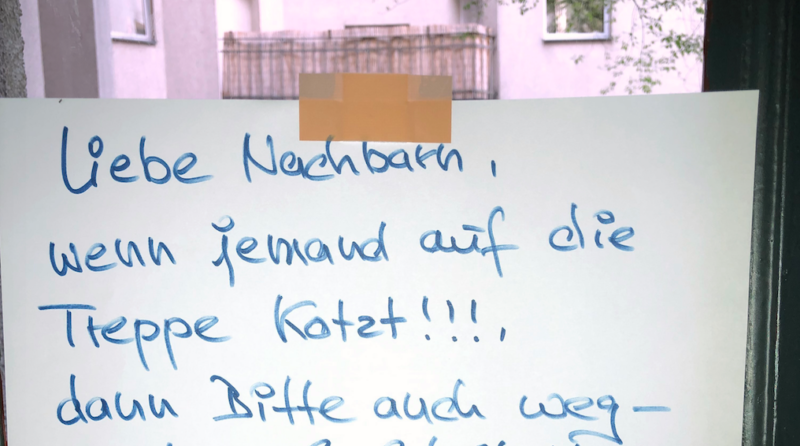 Liebe Nachbarn,
wenn jemand auf die
Treppe Kotzt!!!,
dann Bitte auch weg-